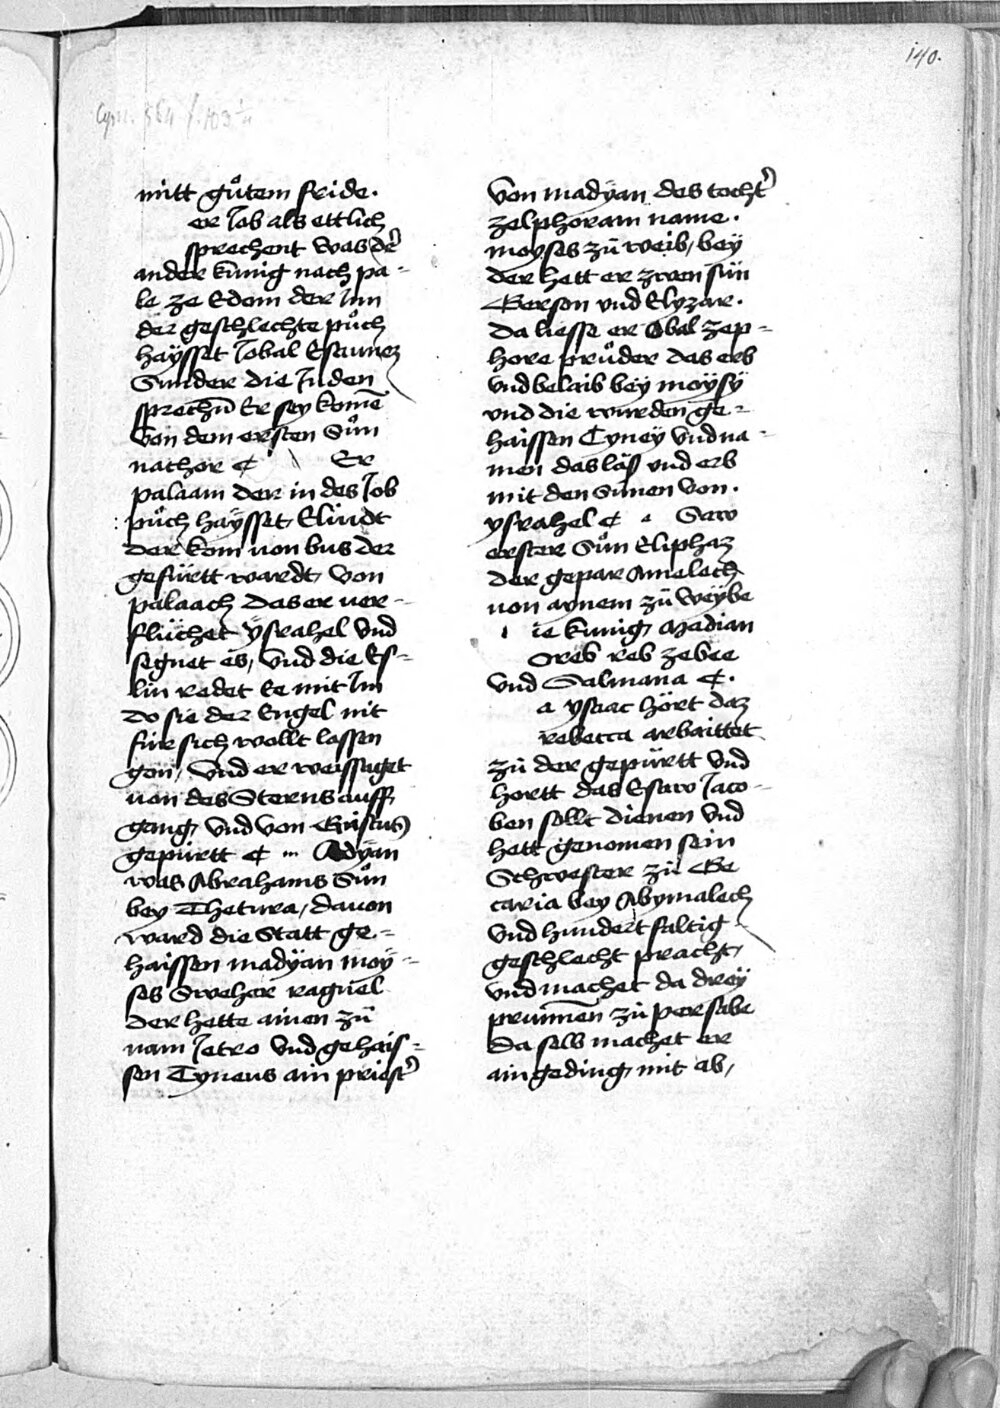 140.
mitt gůtem fride.
er Job als ettlich
sprechent was der̉
ander kunig nach pa-
le ze Edom der Inn
der geschlechte půch
haÿsset Jobal Esaunez
Sunder die Juden
sprechn̄ Er sey komē
von dem ersten Sůn
nachor ¢ Er
palaam der in des Job
půch haÿsset Eliudt
der kom von bus der
gefürtt wardt von
palaach das er ver-
flüchet ÿsrahel vnd
segnet es, vnd die Es-
lin redet Ee mit Im
do sie der Engel nit
für sich wollt lassen
gen, vnd er weissaget
von des Sterns auff
gang, vnd von Cristus
gepürtt ¢ Adÿan
was Abrahams Sůn
bey Thetura, dauon
ward die Statt ge-
haissen madÿan moÿ-
ses Sweher raguel
der hette ainen zů
nam Jetro vnd gehais-
sen Cyneus ain priest̉
von madÿan des tocht̉
zelphoram name.
moyses zů weib, beÿ
der hett er zwen sün
Gerson vnd Elyzar.
Da liesse er Obal zep-
hore průder das erb
vnd belaib beÿ moÿsÿ
vnd die wurden ge-
haissen Cyneÿ vnd na-
men das läs vnd erb
mit den Sunen von.
ysrahel ¢ Saw
erster Sůn Eliphaz
der gepar Amelech
von aynem zů weÿbe
ie kunig, Madian
Oreb reb zebee
vnd Salmana ¢.
a ysaac hört daz
rebecca arbaittet
zů der gepürtt vnd
hortt das Esaw Jaco-
ben sollt dienen vnd
hett genomen sein
Schwester zů Ge
earia bey Abymalech
vnd hundert faltig
geschlecht pracht,
vnd machet da dreÿ
prunnen zů persabe
Da selb machet er
ain geding, mit ab,